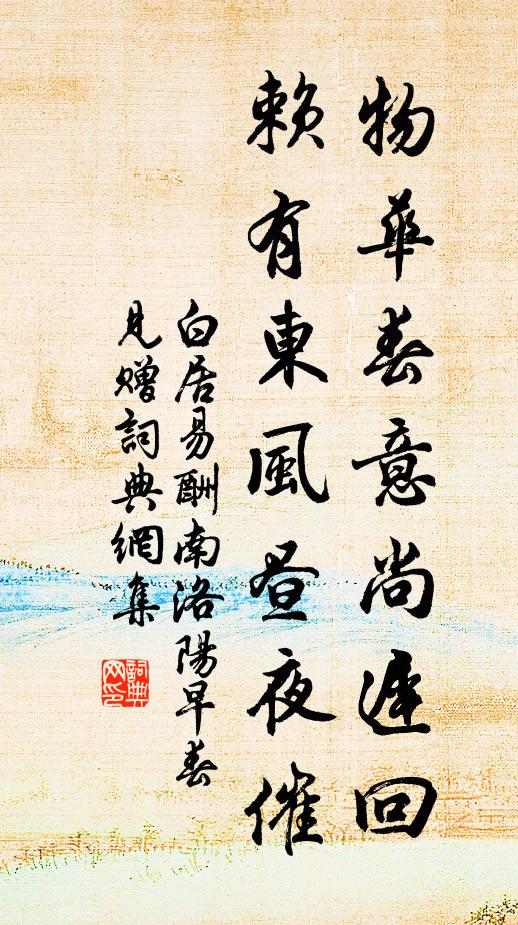 物華春意尚遲回
賴有東風晝夜催
白居易酬南洛陽早春
見贈詞典網集
詞典网印